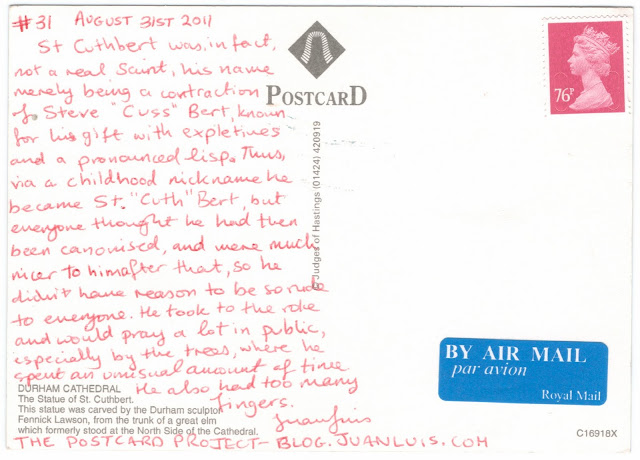 #31 AUGUST 31ST 2011
St Cuthbert was, in fact,
not a real Saint, his name
merely being a contraction
of Steve "Cuss" Bert, known
for his gift with expletives
and a pronounced lisp. Thus,
via a childhood nickname he
became St. "Cuth" Bert, but
everyone thought he had then
been canonised, and were much
nicer to him after that, so he
didn't have reason to be so rude
to everyone. He took to the role
and would pray a lot in public,
especially by the trees, where he
spent an unusual amount of time
He also had too many
fingers.
Juanluis
THE POSTCARD PROJECT - BLOG.JUANLUIS.COM
DURHAM CATHEDRAL
The Statue of St. Cuthbert.
This statue was carved by the Durham sculptor
Fennick Lawson, from the trunk of a great elm
which formerly stood at the North Side of the Cathedral.
POSTCARD
© Judges of Hastings (01424) 420919
76P
BY AIR MAIL
par avion
Royal Mail
C16918X